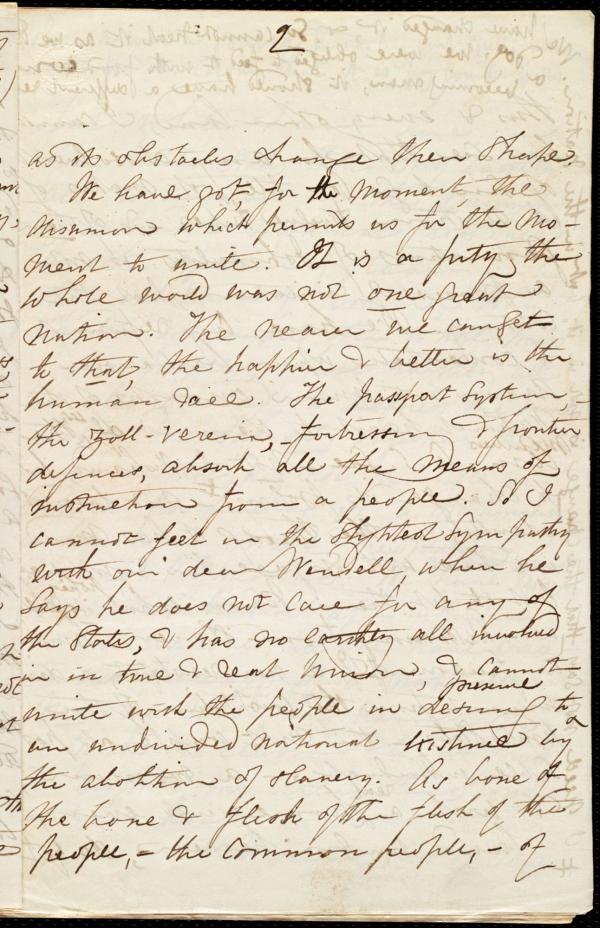 2
as its obstacles change their shape.
We have got, for the moment, the
disunion which permits us for the mo-
ment to unite. It is a pity the
whole world was not one great
nation. The nearer we can get
to that, the happier & better is the
human race. The passport system,
the Zoll-verein, - fortresses & frontier
defences, absorb all the means of
instruction from a people. So I
cannot feel in the slightest sympathy
with our dear Wendell, when he
says he does not care for any of
the States, & has no country all involved
in in true & real Union, & cannot
unite with the people in desiring to
preserve
an undivided national existence by
the abolition of slavery. As bone of
the bone & flesh of the flesh of the
people, - the common people, - of